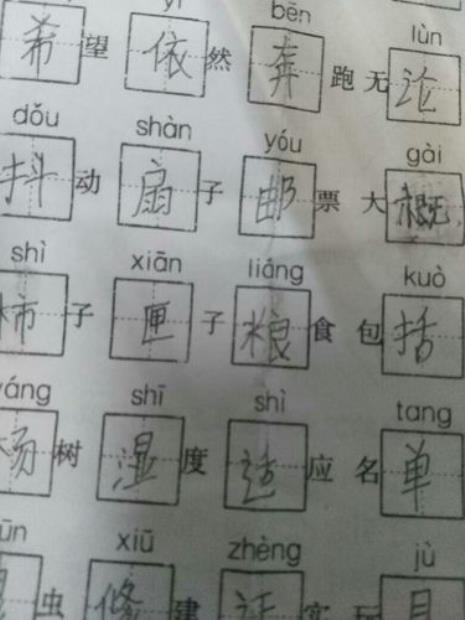 yī bēn lùn
希望 依然 奔跑 无论
dǒu shàn yóu gài
抖动 扇子 邮票 大概
shì xiān liáng kuò
柿子 匣子 粮食 包括
yáng shī shì tang
杨树 湿度 适应 名单
xiū zhèng jù
虫 修建 证实 玩具